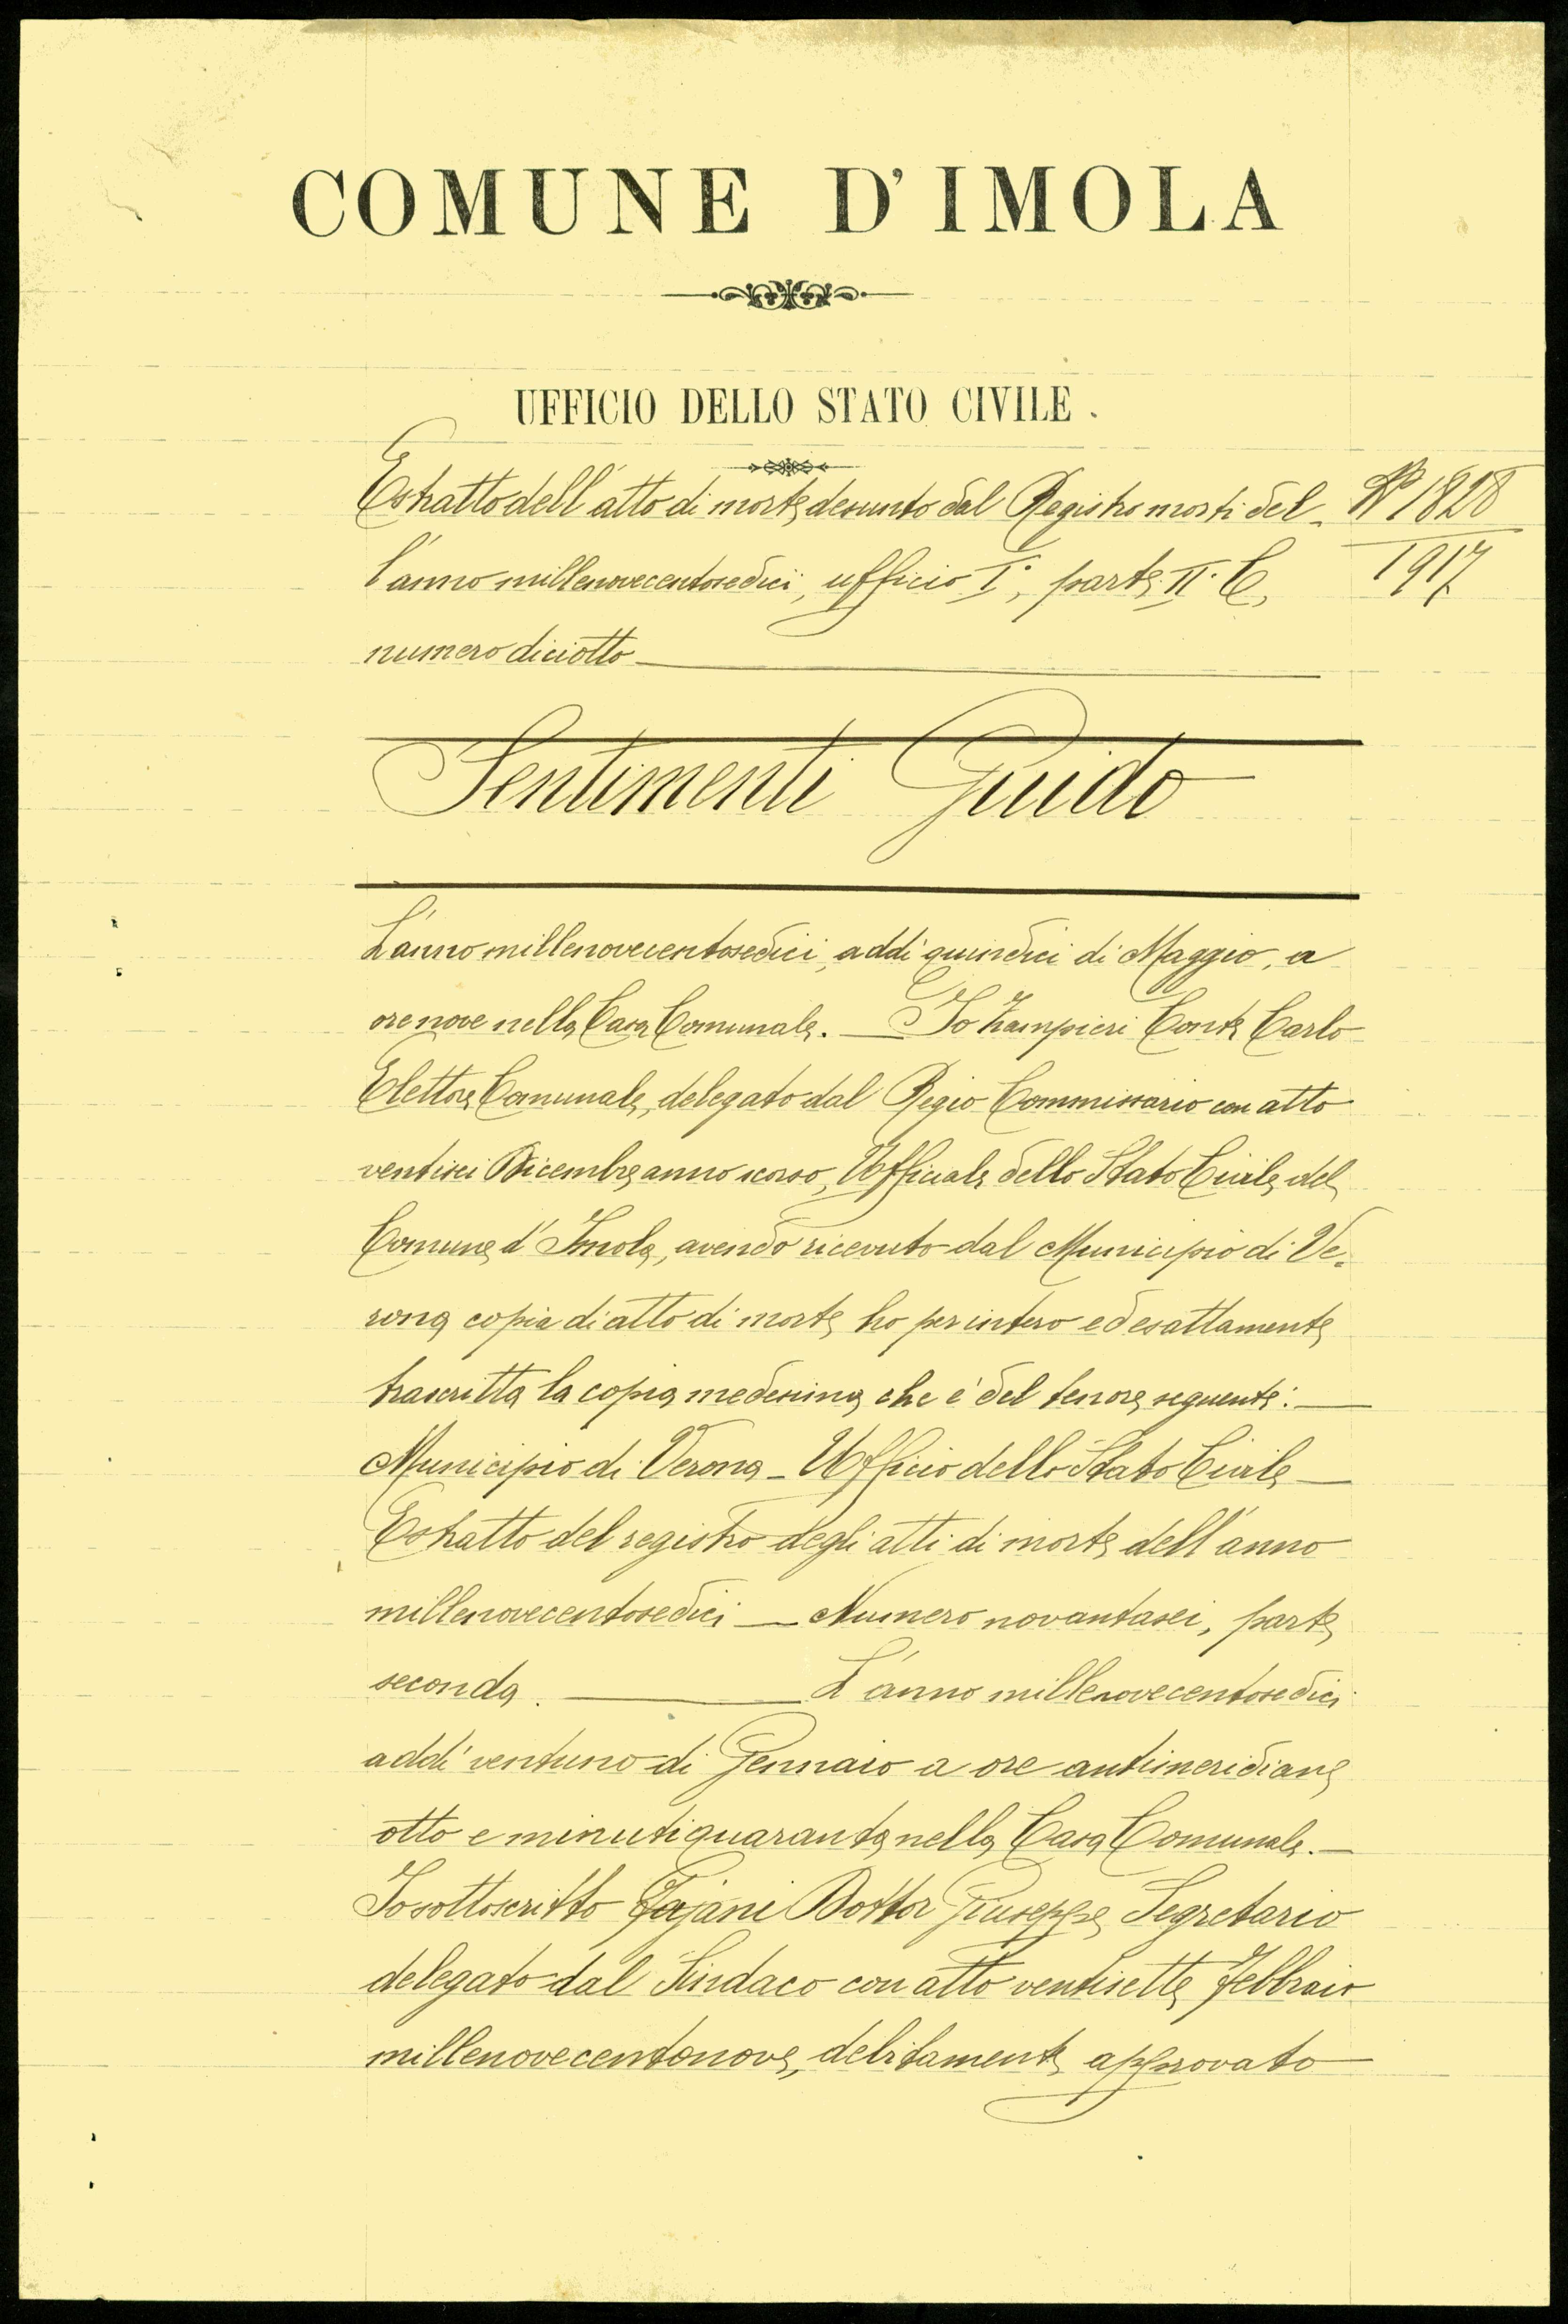 COMUNE D'IMOLA
UFFICIO DELLO STATO CIVILE.
Estratto dell'atto di morte desunto dal Registro morti del-
l'anno millenovecentosedici, ufficio I°, parte II.C,
numero diciotto
No 1828
1917
Sentimenti Guido
L'anno millenovecentosedici, addì quindici di Maggio, a
ore nove nella Casa Comunale. — Io Zampieri Conte Carlo
Elettore Comunale, delegato dal Regio Commissario con atto
ventisei Dicembre anno scorso, Ufficiale dello Stato Civile del
Comune d'Imola, avendo ricevuto dal Municipio di Ve-
rona copia di atto di morte ho per intero ed esattamente
trascritta la copia medesima che è del tenore seguente: —
Municipio di Verona - Ufficio dello Stato Civile —
Estratto del registro degli atti di morte dell'anno
millenovecentosedici — Numero novantasei, parte
seconda. — L'anno millenovecentosedici
addì ventuno di Gennaio a ore antimeridiane
otto e minuti quaranta nella Casa Comunale. —
Io sottoscritto Fajani Dottor Giuseppe Segretario
delegato dal Sindaco con atto ventisette Febbraio
millenovecentonove, debitamente approvato